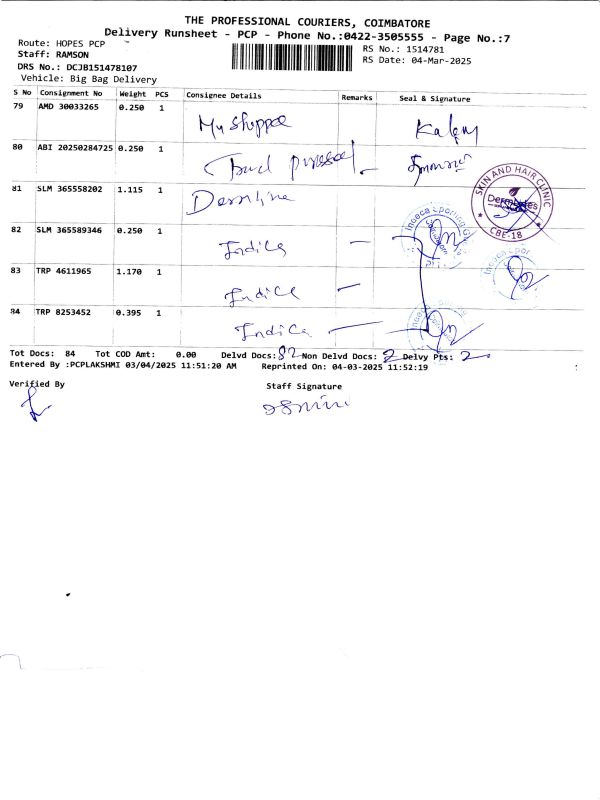 THE PROFESSIONAL COURIERS, COIMBATORE
Delivery Runsheet - PCP - Phone No.:0422-3505555 - Page No.:7
Route: HOPES PCP
Staff: RAMSON
DRS No.: DCJB151478107
Vehicle: Big Bag Delivery
RS No.: 1514781
RS Date: 04-Mar-2025
S No Consignment No Weight PCS Consignee Details Remarks Seal & Signature
79 AMD 30033265 0.250 1 Kalem
80 ABI 20250284725 0.250 1
81 SLM 365558202 1.115 1
SKIN AND HAIR CLINIC
CBE-18
82 SLM 365589346 0.250 1 Indica —
83 TRP 4611965 1.170 1 Indica —
84 TRP 8253452 0.395 1 Indica —
Tot Docs: 84 Tot COD Amt: 0.00 Delvd Docs: 82 Non Delvd Docs: 2 Delvy Pts: 2
Entered By :PCPLAKSHMI 03/04/2025 11:51:20 AM Reprinted On: 04-03-2025 11:52:19
Verified By
Staff Signature